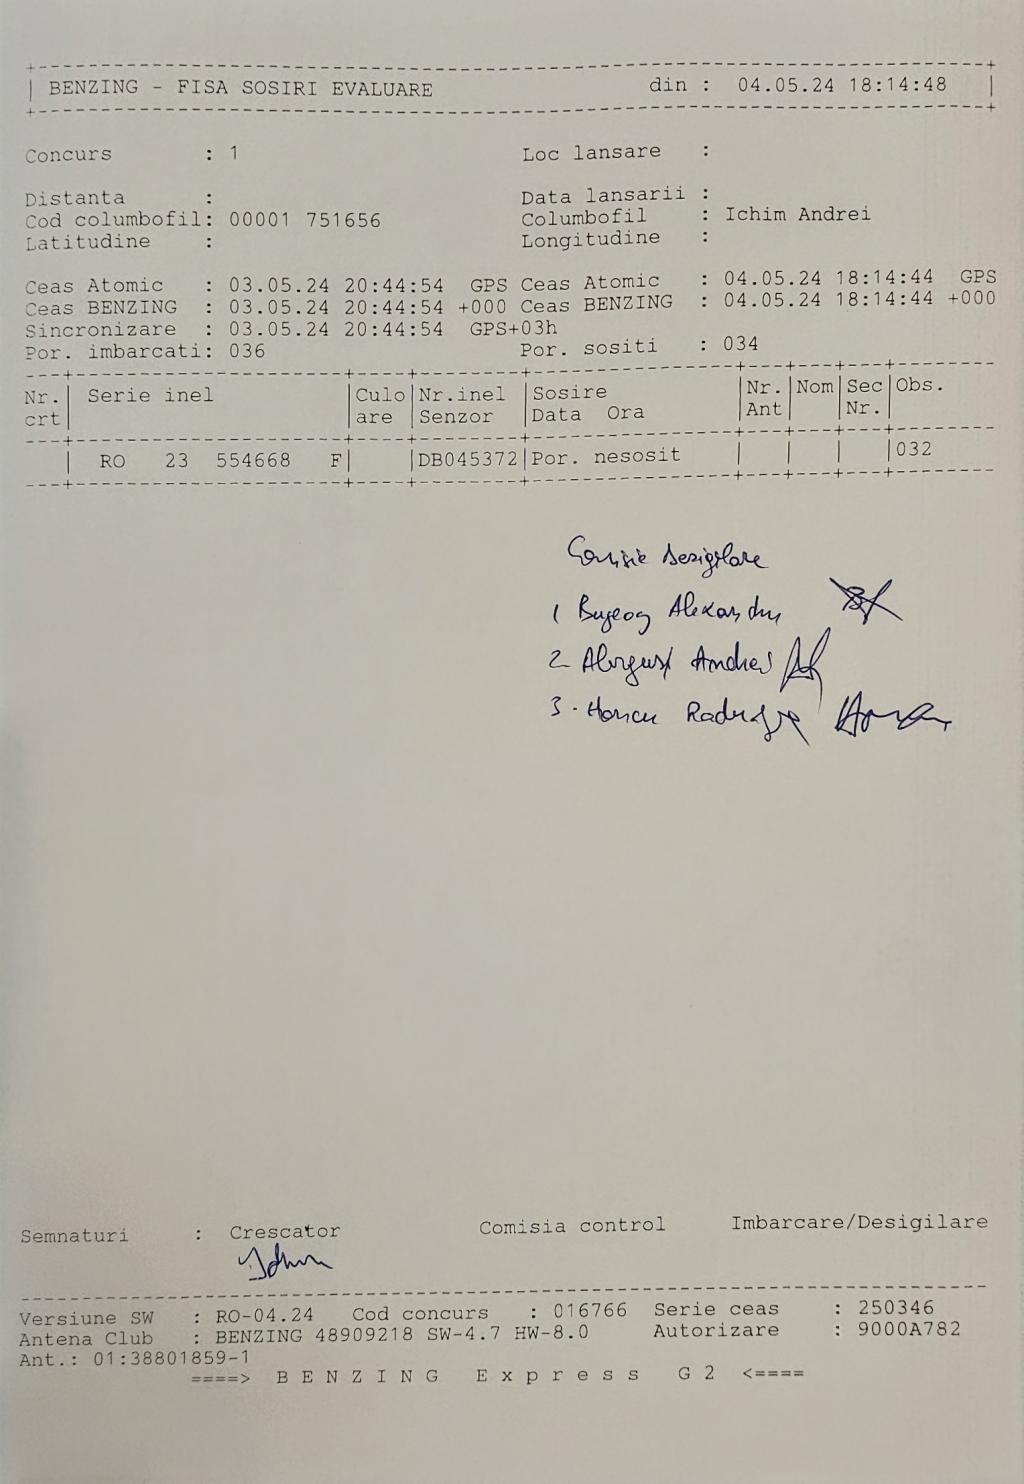 BENZING - FISA SOSIRI EVALUARE din : 04.05.24 18:14:48
Concurs : 1 Loc lansare :
Distanta : Data lansarii :
Cod columbofil: 00001 751656 Columbofil : Ichim Andrei
Latitudine : Longitudine :
Ceas Atomic : 03.05.24 20:44:54 GPS Ceas Atomic : 04.05.24 18:14:44 GPS
Ceas BENZING : 03.05.24 20:44:54 +000 Ceas BENZING : 04.05.24 18:14:44 +000
Sincronizare : 03.05.24 20:44:54 GPS+03h
Por. imbarcati: 036 Por. sositi : 034
Nr. Serie inel Culo Nr.inel Sosire Nr. Nom Sec Obs.
crt are Senzor Data Ora Ant Nr.
RO 23 554668 F DB045372 Por. nesosit 032
Comisie Desigilare
1 Alexandru
2 August Andrei
3.
Semnaturi : Crescator Comisia control Imbarcare/Desigilare
Versiune SW : RO-04.24 Cod concurs : 016766 Serie ceas : 250346
Antena Club : BENZING 48909218 SW-4.7 HW-8.0 Autorizare : 9000A782
Ant.: 01:38801859-1
====> B E N Z I N G E x p r e s s G 2 <====